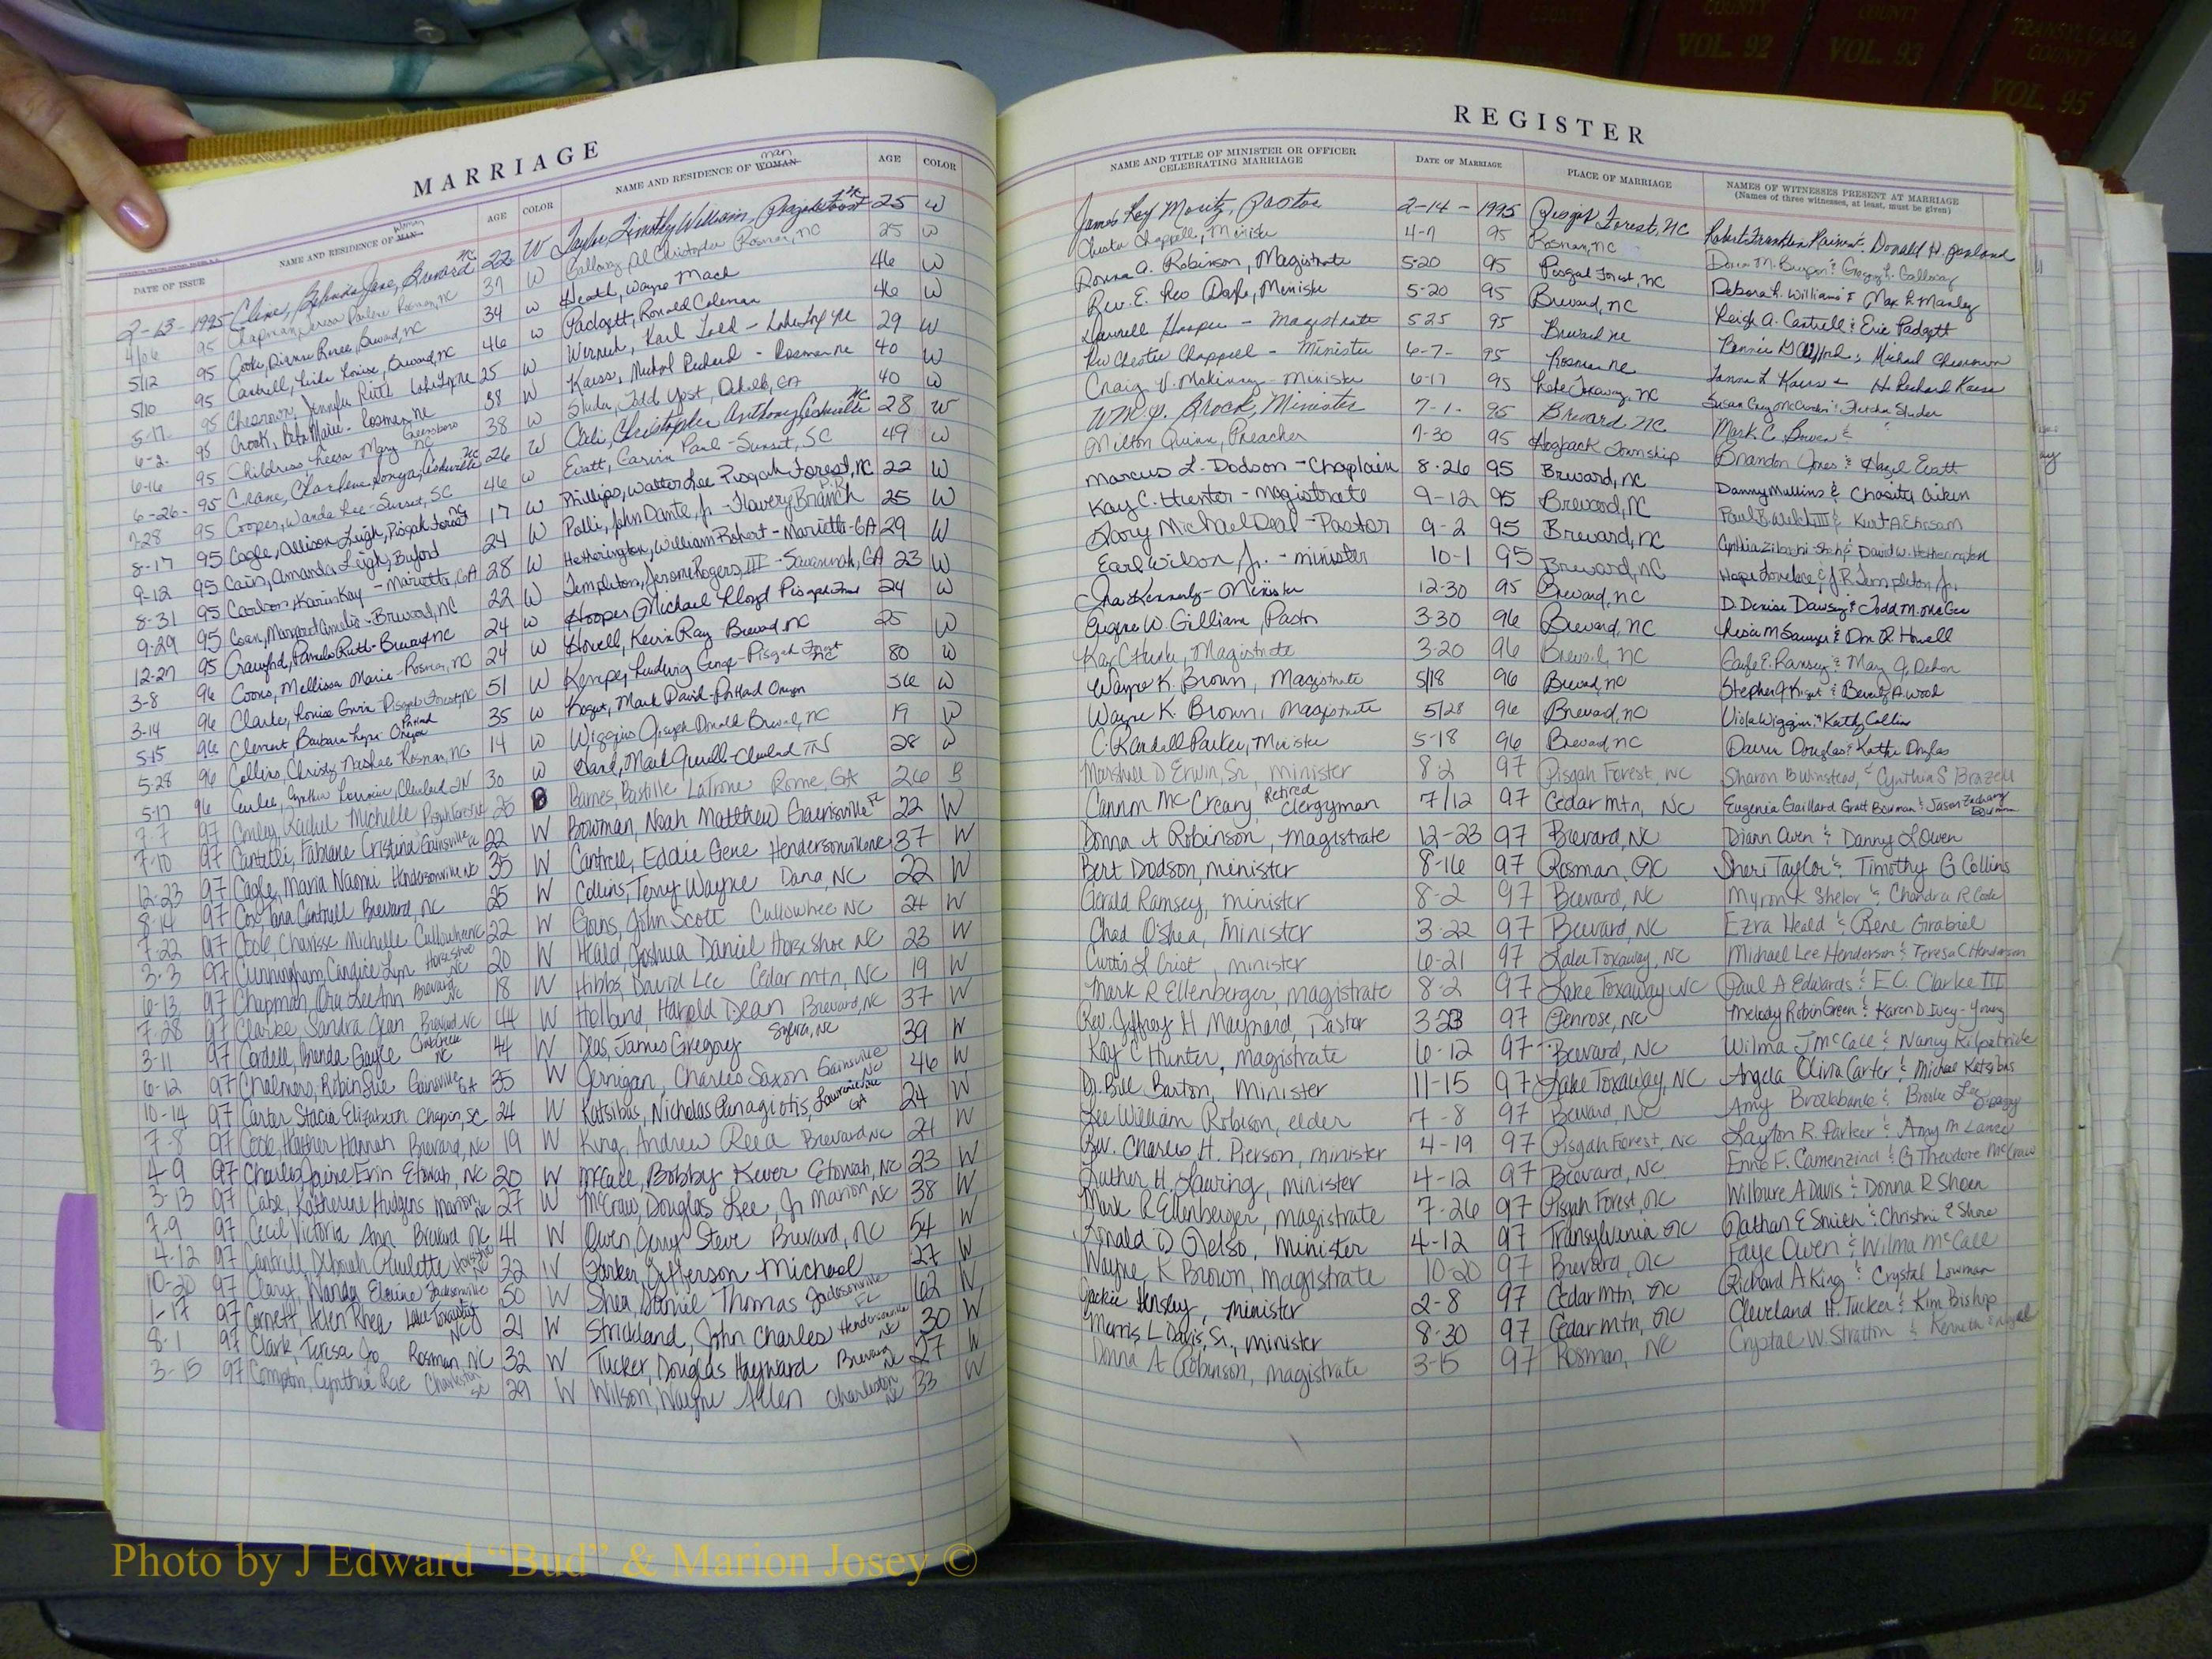 COUNTY VOL. 92
COUNTY VOL. 93
TRANSYLVANIA COUNTY VOL. 95
MARRIAGE
REGISTER
DATE OF ISSUE NAME AND RESIDENCE OF MAN Woman AGE COLOR NAME AND RESIDENCE OF WOMAN man AGE COLOR
NAME AND TITLE OF MINISTER OR OFFICER CELEBRATING MARRIAGE DATE OF MARRIAGE PLACE OF MARRIAGE NAMES OF WITNESSES PRESENT AT MARRIAGE
(Names of three witnesses, at least, must be given)
2-13-1995 Cline, Jane, Brevard NC 22 W Taylor, Timothy William, Pisgah Forest NC 25 W Pastor 2-14-1995 Pisgah Forest, NC Robert Franklin Donald H.
95 Chapman, Teresa Rosman, NC 37 W Galloway, Al Christopher Rosman, NC 25 W Chester Chappell, Minister 4-7 95 Rosman, NC Galloway
5/12 95 Cooke, Dianne Renee, Brevard, NC 34 W Heath, Wayne Mack 46 W Donna A. Robinson, Magistrate 5-20 95 Pisgah Forest, NC Debora L. Williams & Max L. Manley
5/10 95 Cantrell, Linda Louise, Brevard, NC 46 W Padgett, Ronald Coleman 46 W Rev. E. Leo Minister 5-20 95 Brevard, NC Leigh A. Cantrell & Eric Padgett
5-17 95 Jennifer 25 W Karl Todd - 29 W Hooper - Magistrate 5 25 95 Brevard NC Bonnie Michael
6-2 95 Crook, Marie - Rosman NC 38 W Kaiss, Michael Richard - Rosman NC 40 W Rev Chester Chappell - Minister 6-7- 95 Rosman NC
6-16 95 Childress, Leesa Mary Greensboro NC 38 W Studer, Todd Yost, Dekalb, GA 40 W Craig V. McKinney - Minister 6-17 95 Lake Toxaway, NC Fletcher Studer
6-26- 95 Crane, Charlene Asheville NC 26 W Christopher Anthony, Asheville NC 28 W Wm. Brock, Minister 7-1- 95 Brevard, NC Mark C. Bowen &
7-28 95 Cooper, Wanda Lee - Sunset, SC 46 W Evatt, Carvin Paul - Sunset, SC 49 W Milton Quinn, Preacher 7-30 95 Hogback Township Brandon Jones & Hazel Evatt
8-17 95 Cagle, Allison Leigh, Pisgah Forest NC 17 W Phillips, Walter Lee Pisgah Forest, NC 22 W Marcus L. Dodson - Chaplain 8-26 95 Brevard, NC Danny Mullins & Chasity Aiken
9-12 95 Cain, Amanda Leigh, Buford 24 W Polli, John Dante, Jr - Flowery Branch 25 W Kay C. Hunter - Magistrate 9-12 95 Brevard, NC Paul B. Welch III & Kurt A
8-31 95 Carlson, Karin Kay - Marietta, GA 28 W Hetherington, William Robert - Marietta - GA 29 W Gary Michael Deal - Pastor 9-2 95 Brevard, NC David W. Hetherington
9-29 95 Coan, Margaret Amelia - Brevard, NC 22 W Templeton, Jerome Rogers, III - Savannah, GA 23 W Earl Wilson Jr. - minister 10-1 95 Brevard, NC Hope Lovelace & J.R. Templeton, Jr.
12-27 95 Crawford, Pamela Ruth - Brevard NC 24 W Hooper, Michael Lloyd Pisgah Forest 24 W Kennerly - Minister 12-30 95 Brevard, NC D. Denise Dawsey & Todd M. McGee
3-8 96 Coons, Mellissa Marie - Rosman, NC 24 W Howell, Kevin Ray Brevard, NC 25 W Eugene W. Gilliam, Pastor 3-30 96 Brevard, NC Lisa M Sawyer & Don R. Howell
3-14 96 Clarke, Louise Pisgah Forest, NC 51 W Kemper, Ludwig George - Pisgah Forest NC 80 W Kay C Hunter, Magistrate 3-20 96 Brevard, NC Gayle E. Ramsey & May J. Dehon
5-15 96 Clement Barbara Lynn Portland Oregon 35 W Kogut, Mark David - Portland Oregon 36 W Wayne K. Brown, Magistrate 5/18 96 Brevard, NC Stephen Kogut & Beverly A. Wood
5-28 96 Collins, Christy Nashae Rosman, NC 14 W Wiggins Joseph Donald Brevard, NC 19 W Wayne K. Brown, Magistrate 5/28 96 Brevard, NC Viola Wiggins & Kathy Collins
5-17 96 Cynthia Lorraine, Cleveland, TN 30 W Mark - Cleveland TN 28 W C. Randall Parker, Minister 5-18 96 Brevard, NC Darren Douglas & Kathi Douglas
7-7 97 Conley Rachel Michelle Pisgah Forest 25 B Barnes, Bastille LaTrone Rome, GA 26 B Marshall D Erwin, Sr, minister 8-2 97 Pisgah Forest, NC Sharon B Winstead, & Cynthia S Brazell
7-10 97 Fabiane Cristina Gainsville FL 22 W Bowman, Noah Matthew Gainsville FL 22 W Cannon McCreary, Retired Clergyman 7/12 97 Cedar Mtn, NC Eugenia Gaillard Grott Bowman & Jason Zachary Bowman
12-23 97 Cagle, Maria Naomi Hendersonville NC 35 W Cantrell, Eddie Gene Hendersonville NC 37 W Donna A Robinson, Magistrate 12-23 97 Brevard, NC Diann Owen & Danny L Owen
8-14 97 Cox, Tana Cantrell Brevard, NC 25 W Collins, Terry Wayne Dana, NC 22 W Bert Dodson, minister 8-16 97 Rosman, NC Sheri Taylor & Timothy G Collins
7-22 97 Cook, Charisse Michelle Cullowhee NC 22 W Goins, John Scott Cullowhee NC 24 W Gerald Ramsey, minister 8-2 97 Brevard, NC Myron K Shelor & Chandra R Cook
3-3 97 Cunningham, Candice Lyn Horse Shoe NC 20 W Heald, Joshua Daniel Horse Shoe NC 23 W Chad O'Shea, minister 3-22 97 Brevard, NC Ezra Heald & Rene Grabiel
6-13 97 Chapman, Ora Lee Ann Brevard NC 18 W Hibbs, David Lee Cedar mtn, NC 19 W Curtis L Crist, minister 6-21 97 Lake Toxaway, NC Michael Lee Henderson & Teresa C Henderson
7-28 97 Clarke Sandra Jean Brevard NC 44 W Holland, Harold Dean Brevard, NC 37 W Mark R Ellenberger, magistrate 8-2 97 Lake Toxaway NC Paul A Edwards & E C. Clarke III
3-11 97 Cordell, Brenda Gayle NC 44 W Deas, James Gregory Sylva, NC 39 W Rev. Jeffrey H Maynard, Pastor 3-23 97 Penrose, NC Melody Robin Green & Karen D Ivey-Young
6-12 97 Chalmers, Robin Sue Gainsville GA 35 W Jernigan, Charles Saxon Gainsville 46 W Kay C Hunter, magistrate 6-12 97 Brevard, NC Wilma J McCall & Nancy Kilpatrick
10-14 97 Carter Stacia Elizabeth Chapin, SC 24 W Katsibas, Nicholas Panagiotis, Lawrenceville GA 24 W D. Bill Barton, Minister 11-15 97 Lake Toxaway, NC Angela Olivia Carter & Michael Katsibas
7-8 97 Cook, Heather Hannah Brevard, NC 19 W King, Andrew Reed Brevard NC 21 W Lee William Robison, elder 7-8 97 Brevard, NC Amy Brockbank & Brooke Lee
4-9 97 Charles Jaime Erin Etowah, NC 20 W McCall, Bobby Kever Etowah, NC 23 W Rev. Charles H. Pierson, minister 4-19 97 Pisgah Forest, NC Layton R. Parker & Amy M Lance
3-13 97 Cable, Katherine Hudgins Marion NC 27 W McCraw, Douglas Lee, Jr Marion NC 38 W Luther H. Lawing, minister 4-12 97 Brevard, NC Enno F. Camenzind & G Theodore McCraw
7-9 97 Cecil Victoria Ann Brevard NC 41 W Owen, Jerry Steve Brevard, NC 54 W Mark R Ellenberger, magistrate 7-26 97 Pisgah Forest, NC Wilbure A Davis & Donna R Shoen
4-12 97 Cantrell Deborah Paulette Horse Shoe NC 22 W Parker, Jefferson Michael 27 W Ronald D Nelso, minister 4-12 97 Transylvania NC Nathan E Smith & Christine E Shore
10-20 97 Clary, Wanda Elaine Jacksonville 50 W Shea, Daniel Thomas Jacksonville FL 62 W Wayne K Brown, magistrate 10-20 97 Brevard, NC Faye Owen & Wilma McCall
1-17 97 Cornett, Helen Rhea Lake Toxaway NC 21 W Strickland, John Charles Hendersonville NC 30 W Jackie Hensley, minister 2-8 97 Cedar mtn, NC Richard A King & Crystal Lowman
8-1 97 Clark, Teresa Jo Rosman, NC 32 W Tucker, Douglas Hayward Brevard NC 27 W Morris L Davis, Sr., minister 8-30 97 Cedar mtn, NC Cleveland H. Tucker & Kim Bishop
3-15 97 Compton, Cynthia Rae Charleston SC 29 W Wilson, Wayne Allen Charleston 33 W Donna A Robinson, magistrate 3-15 97 Rosman, NC Crystal W. Stratton & Kenneth
Photo by J Edward "Bud" & Marion Josey ©